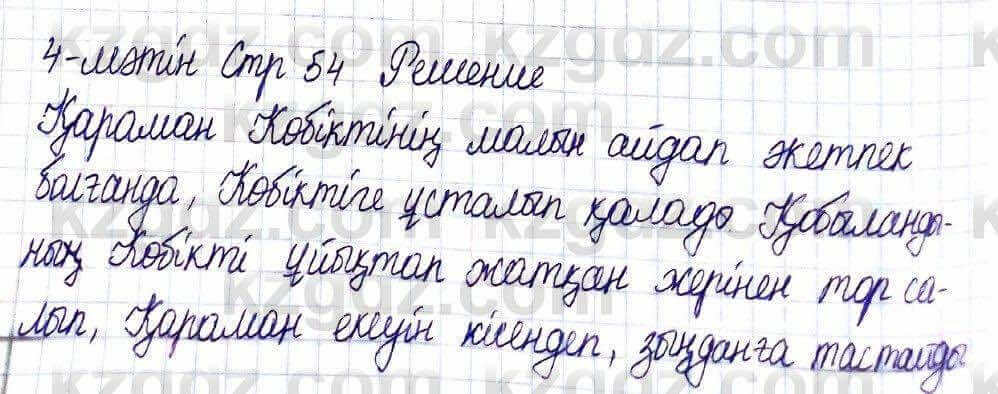 4-мәтін Стр 54 Решение
Қараман Көбіктінің малын айдап жетпек
болғанда, Көбіктіге ұсталып қалады. Қобыланды-
ның Көбікті ұйықтап жатқан жерінен тор са-
лып, Қараман екеуін кісендеп, зынданға тастайды